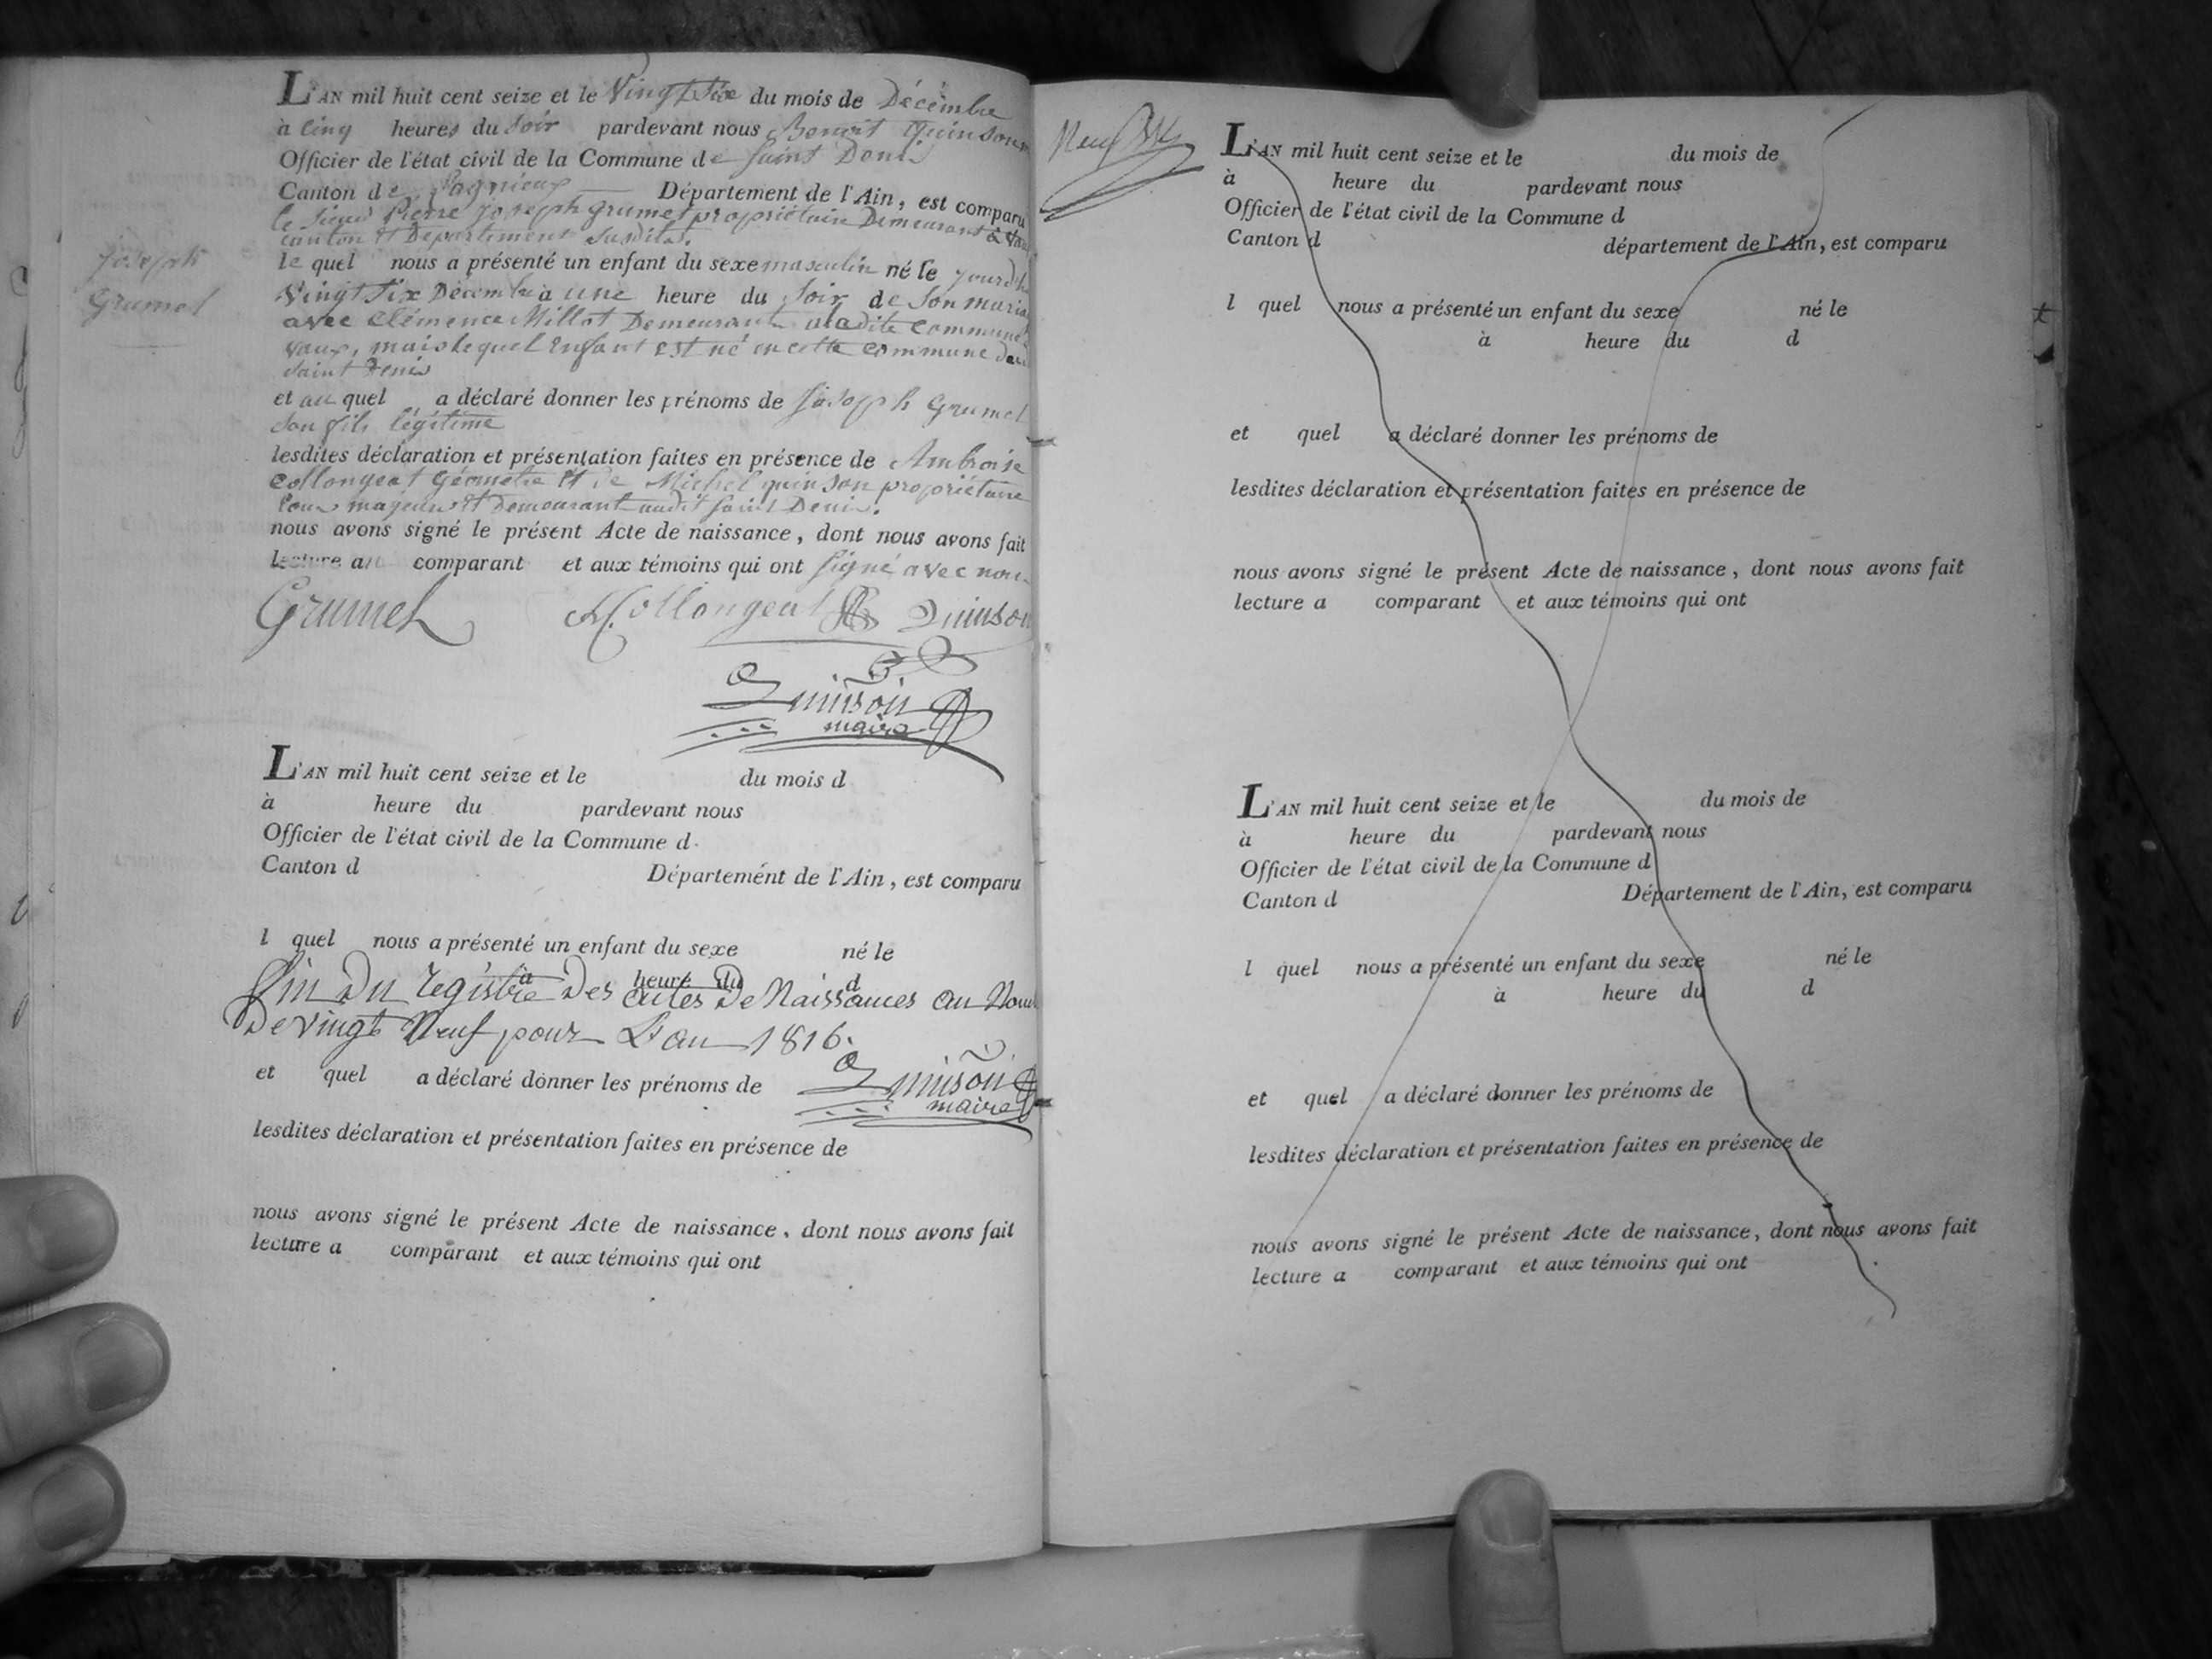 L'AN mil huit cent seize et le Vingt Six du mois de Décembre
à Cinq heures du Soir pardevant nous Benoit Quinson
Officier de l'état civil de la Commune de Saint Denis
Canton de Lagnieux Département de l'Ain, est comparu
le Sieur Pierre Joseph Grumet propriétaire Demeurant à Vaux
canton et Département Susdits.
le quel nous a présenté un enfant du sexe masculin né le jourd'h
Vingt Six Décembre à une heure du Soir de Son maria
avec Clémence Millot Demeurant a ladite Commune
Vaux, mais lequel Enfant est né en cette commune de
Saint Denis
et au quel a déclaré donner les prénoms de Joseph Grumet
Son fils légitime
lesdites déclaration et présentation faites en présence de Ambroise
Collongeat Géometre et de Michel quinson propriétaire
tous majeurs et Demeurant audit Saint Denis.
nous avons signé le présent Acte de naissance, dont nous avons fait
lecture au comparant et aux témoins qui ont Signé avec nous
Joseph
Grumet
Grumet Collongeat Quinson
Quinson
maire
L'AN mil huit cent seize et le du mois d
à heure du pardevant nous
Officier de l'état civil de la Commune d
Canton d Département de l'Ain, est comparu
l quel nous a présenté un enfant du sexe né le
à heure du d
fin Du registre Des actes De Naissances au Nom
De Vingt Neuf pour L'an 1816.
et quel a déclaré donner les prénoms de
Quinson
maire
lesdites déclaration et présentation faites en présence de
nous avons signé le présent Acte de naissance, dont nous avons fait
lecture a comparant et aux témoins qui ont
Neuf
L'AN mil huit cent seize et le du mois de
à heure du pardevant nous
Officier de l'état civil de la Commune d
Canton d département de l'Ain, est comparu
l quel nous a présenté un enfant du sexe né le
à heure du d
et quel a déclaré donner les prénoms de
lesdites déclaration et présentation faites en présence de
nous avons signé le présent Acte de naissance, dont nous avons fait
lecture a comparant et aux témoins qui ont
L'AN mil huit cent seize et le du mois de
à heure du pardevant nous
Officier de l'état civil de la Commune d
Canton d Département de l'Ain, est comparu
l quel nous a présenté un enfant du sexe né le
à heure du d
et quel a déclaré donner les prénoms de
lesdites déclaration et présentation faites en présence de
nous avons signé le présent Acte de naissance, dont nous avons fait
lecture a comparant et aux témoins qui ont